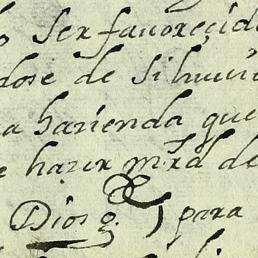 ser favorecido
dose de si hu
a hazienda que
hazer mrd de
Dios g. para